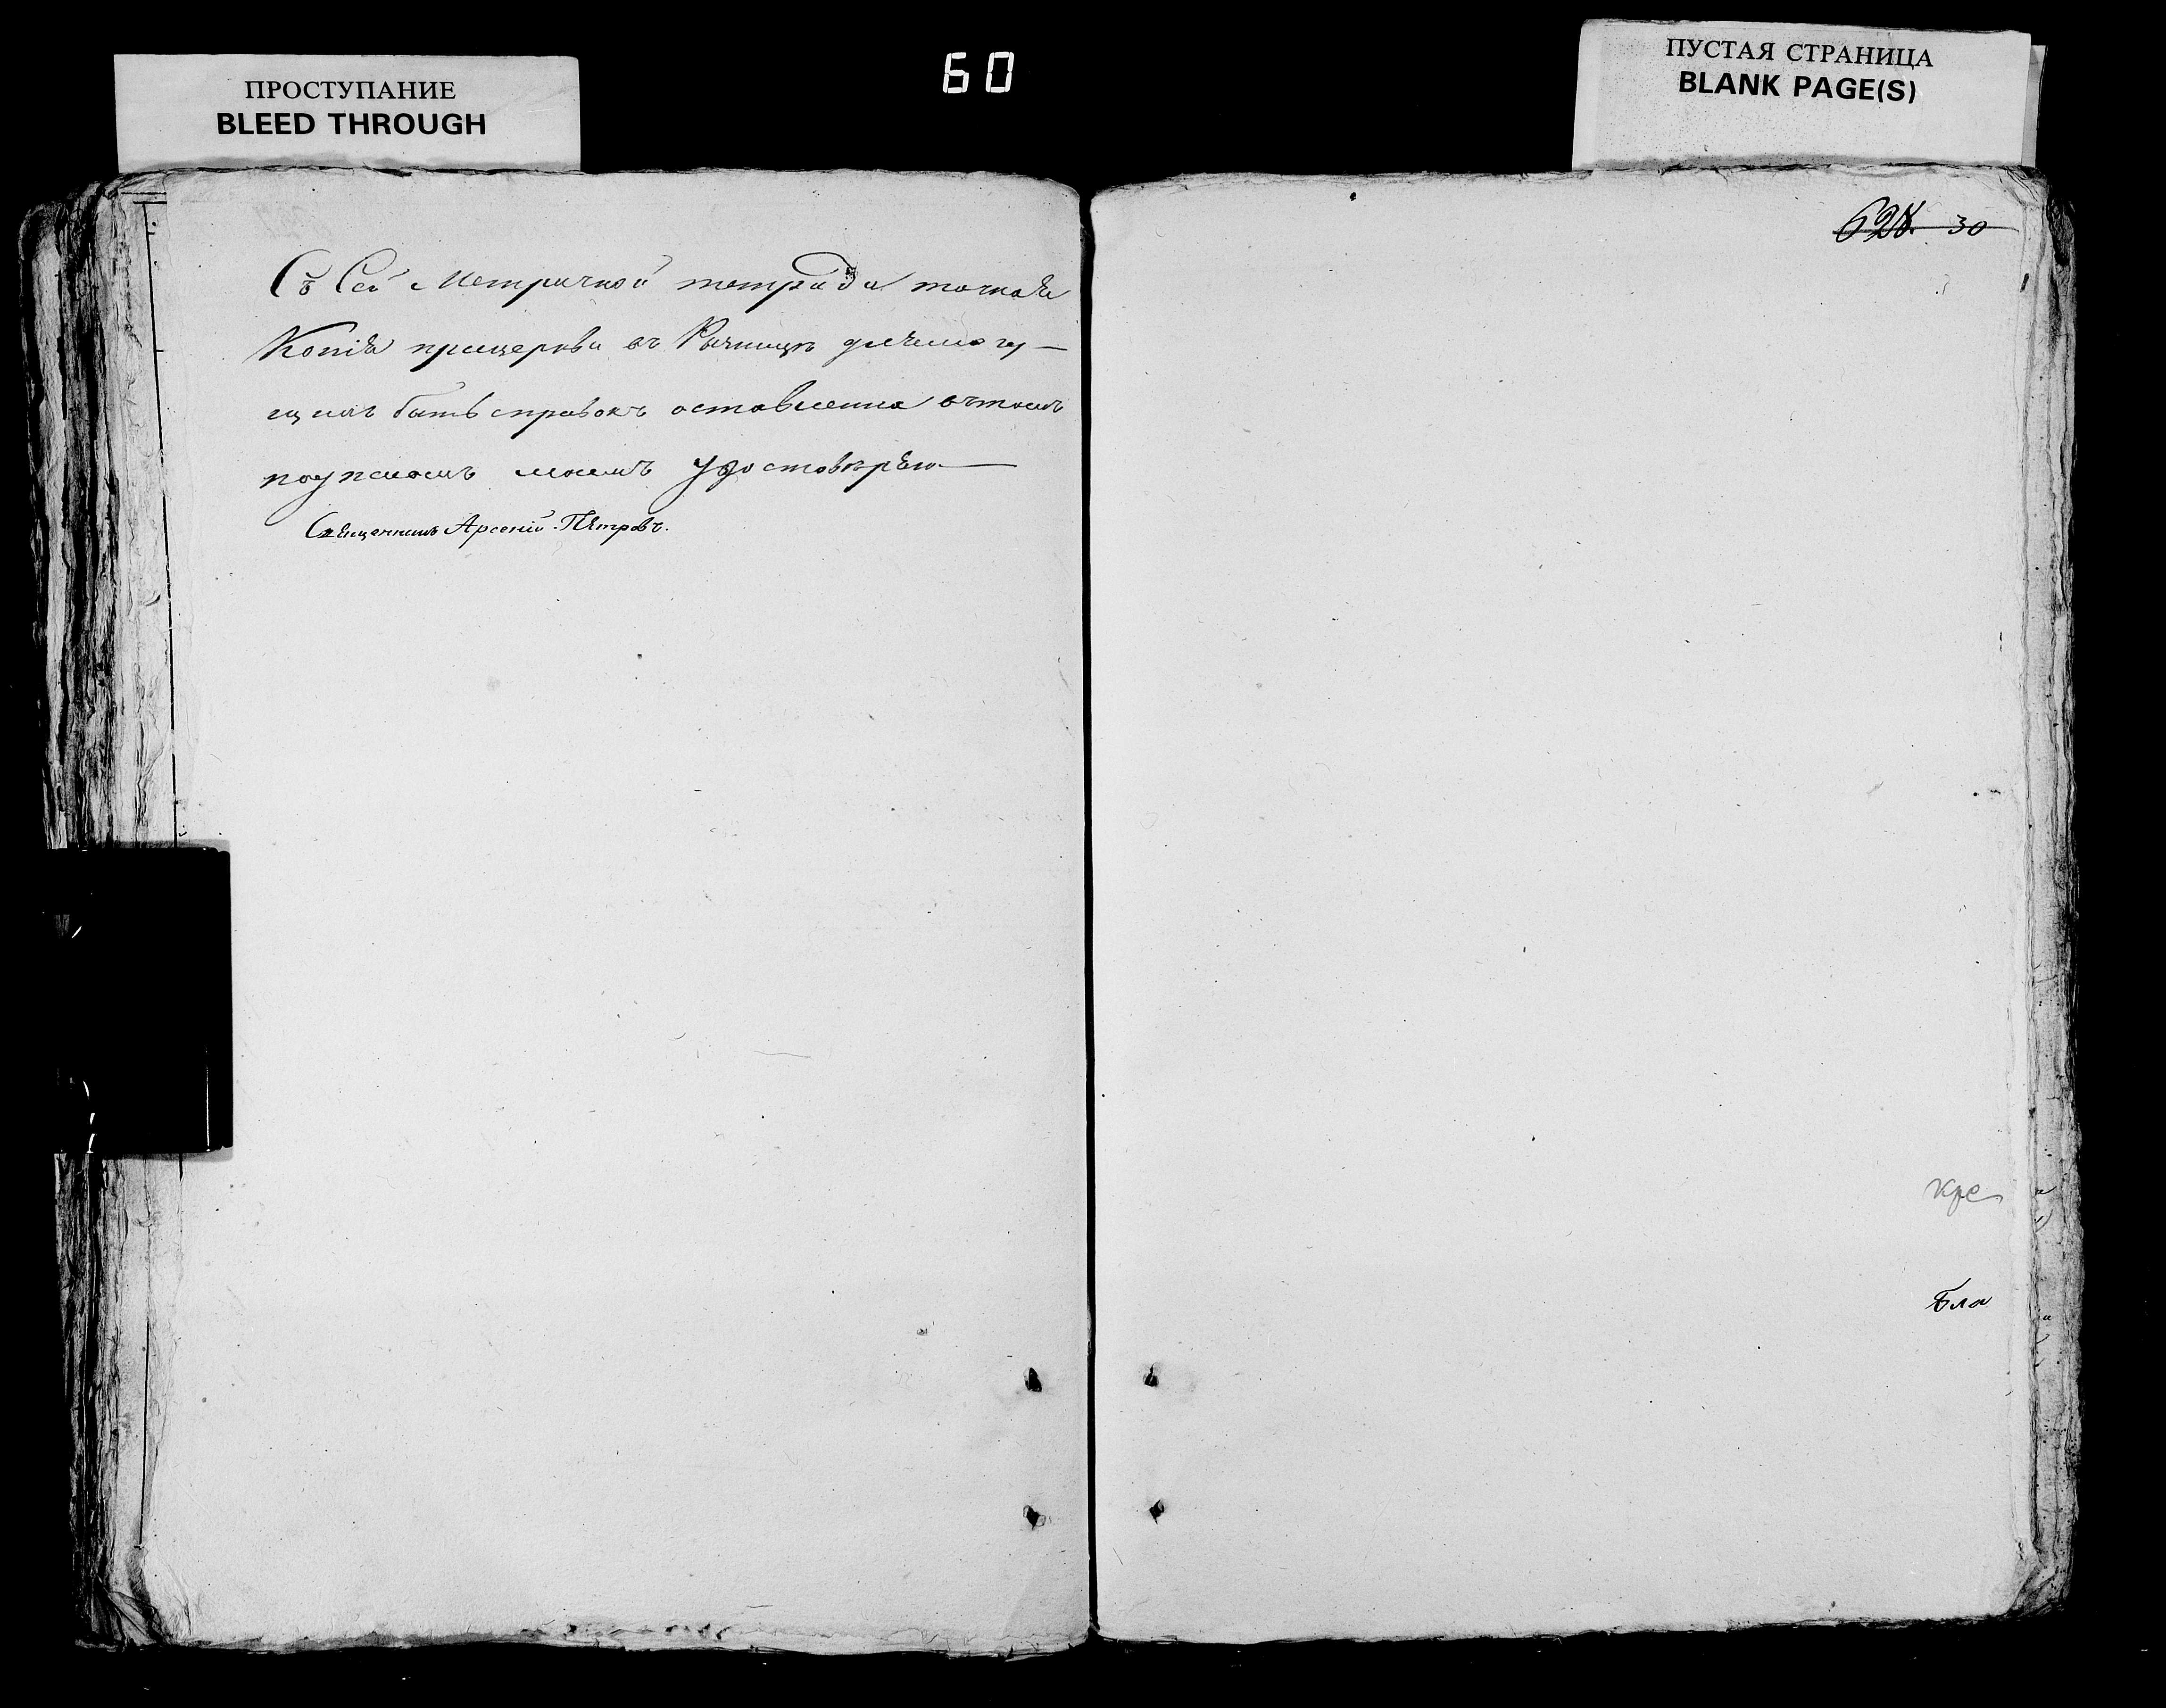 ПРОСТУПАНИЕ
BLEED THROUGH
60
ПУСТАЯ СТРАНИЦА
BLANK PAGE(S)
628. 30
Съ Сей Метричной тетради точная
Копія прицеркви въ Ризницѣ длямогу-
щихъ быть справокъ оставленна вчемъ
подписомъ моимъ удостовѣряю
Священникъ Арсеній Петровъ.
кре
Бла